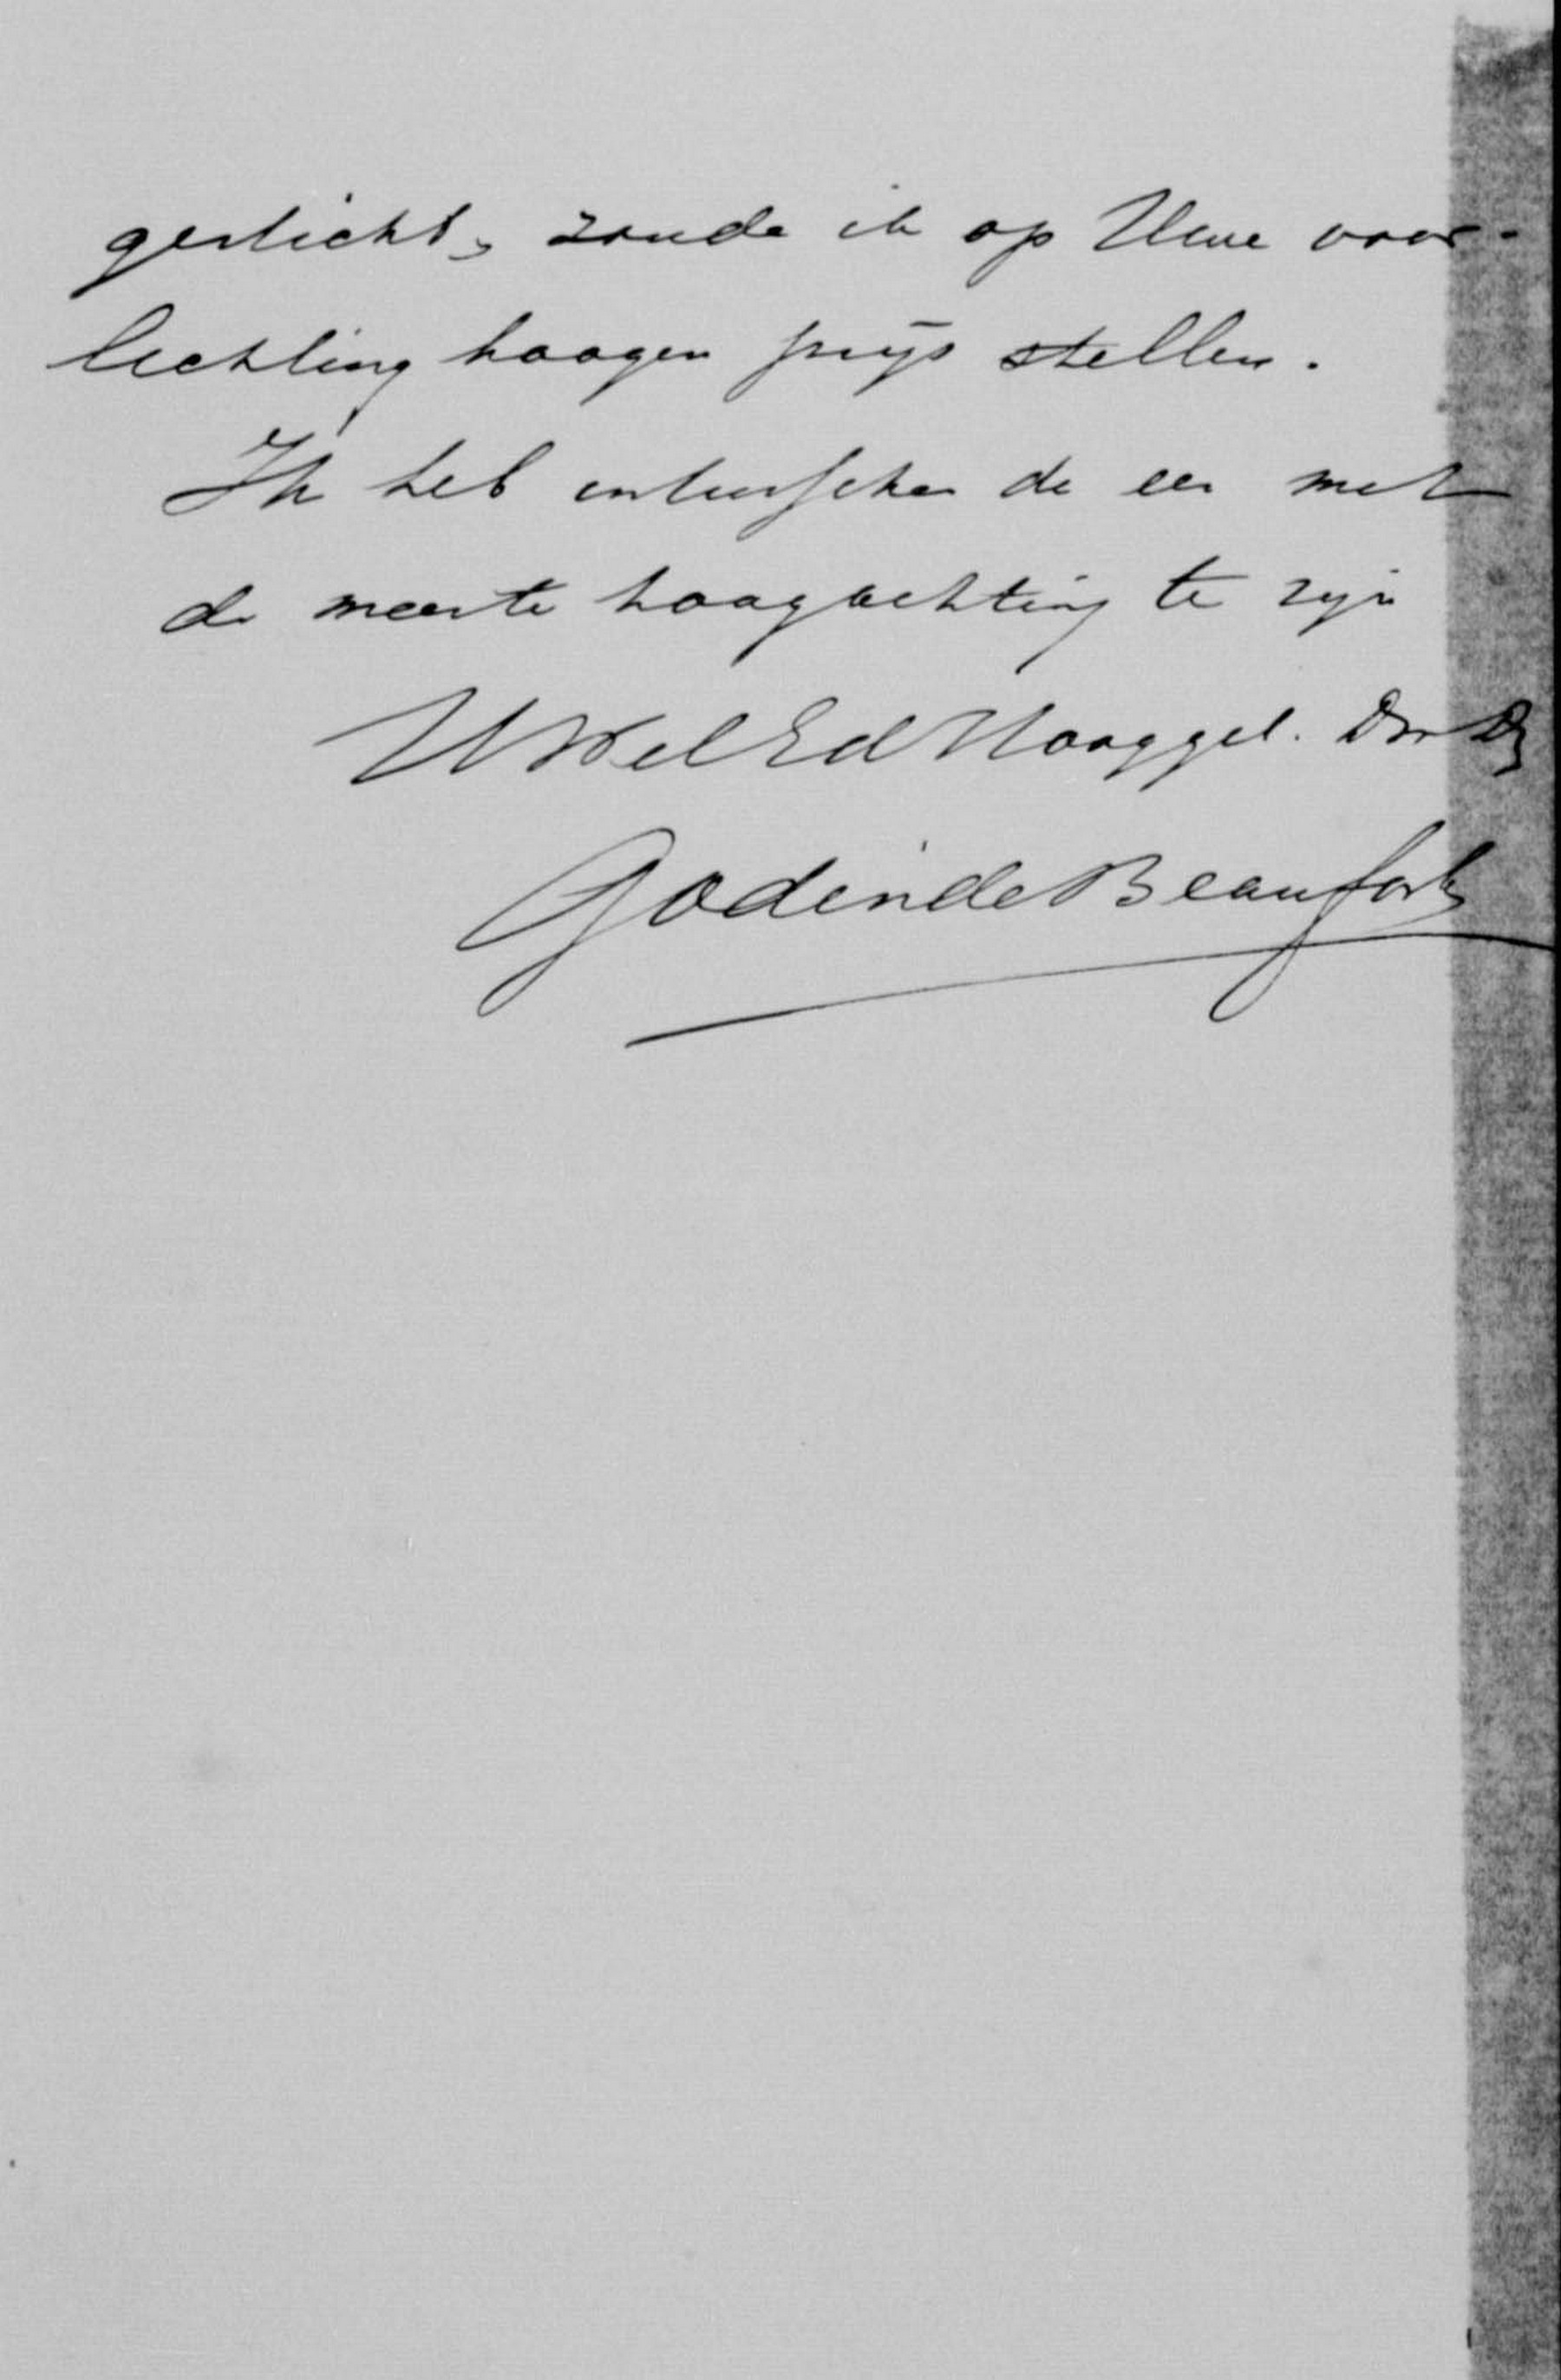 gesticht, zoude ik op Uwe voor-
lichting hoogen prijs stellen.
Ik heb intusschen de eer met
de meeste hoogachting te zijn
UWelEdHooggel. Dw Dr
Godin de Beaufort